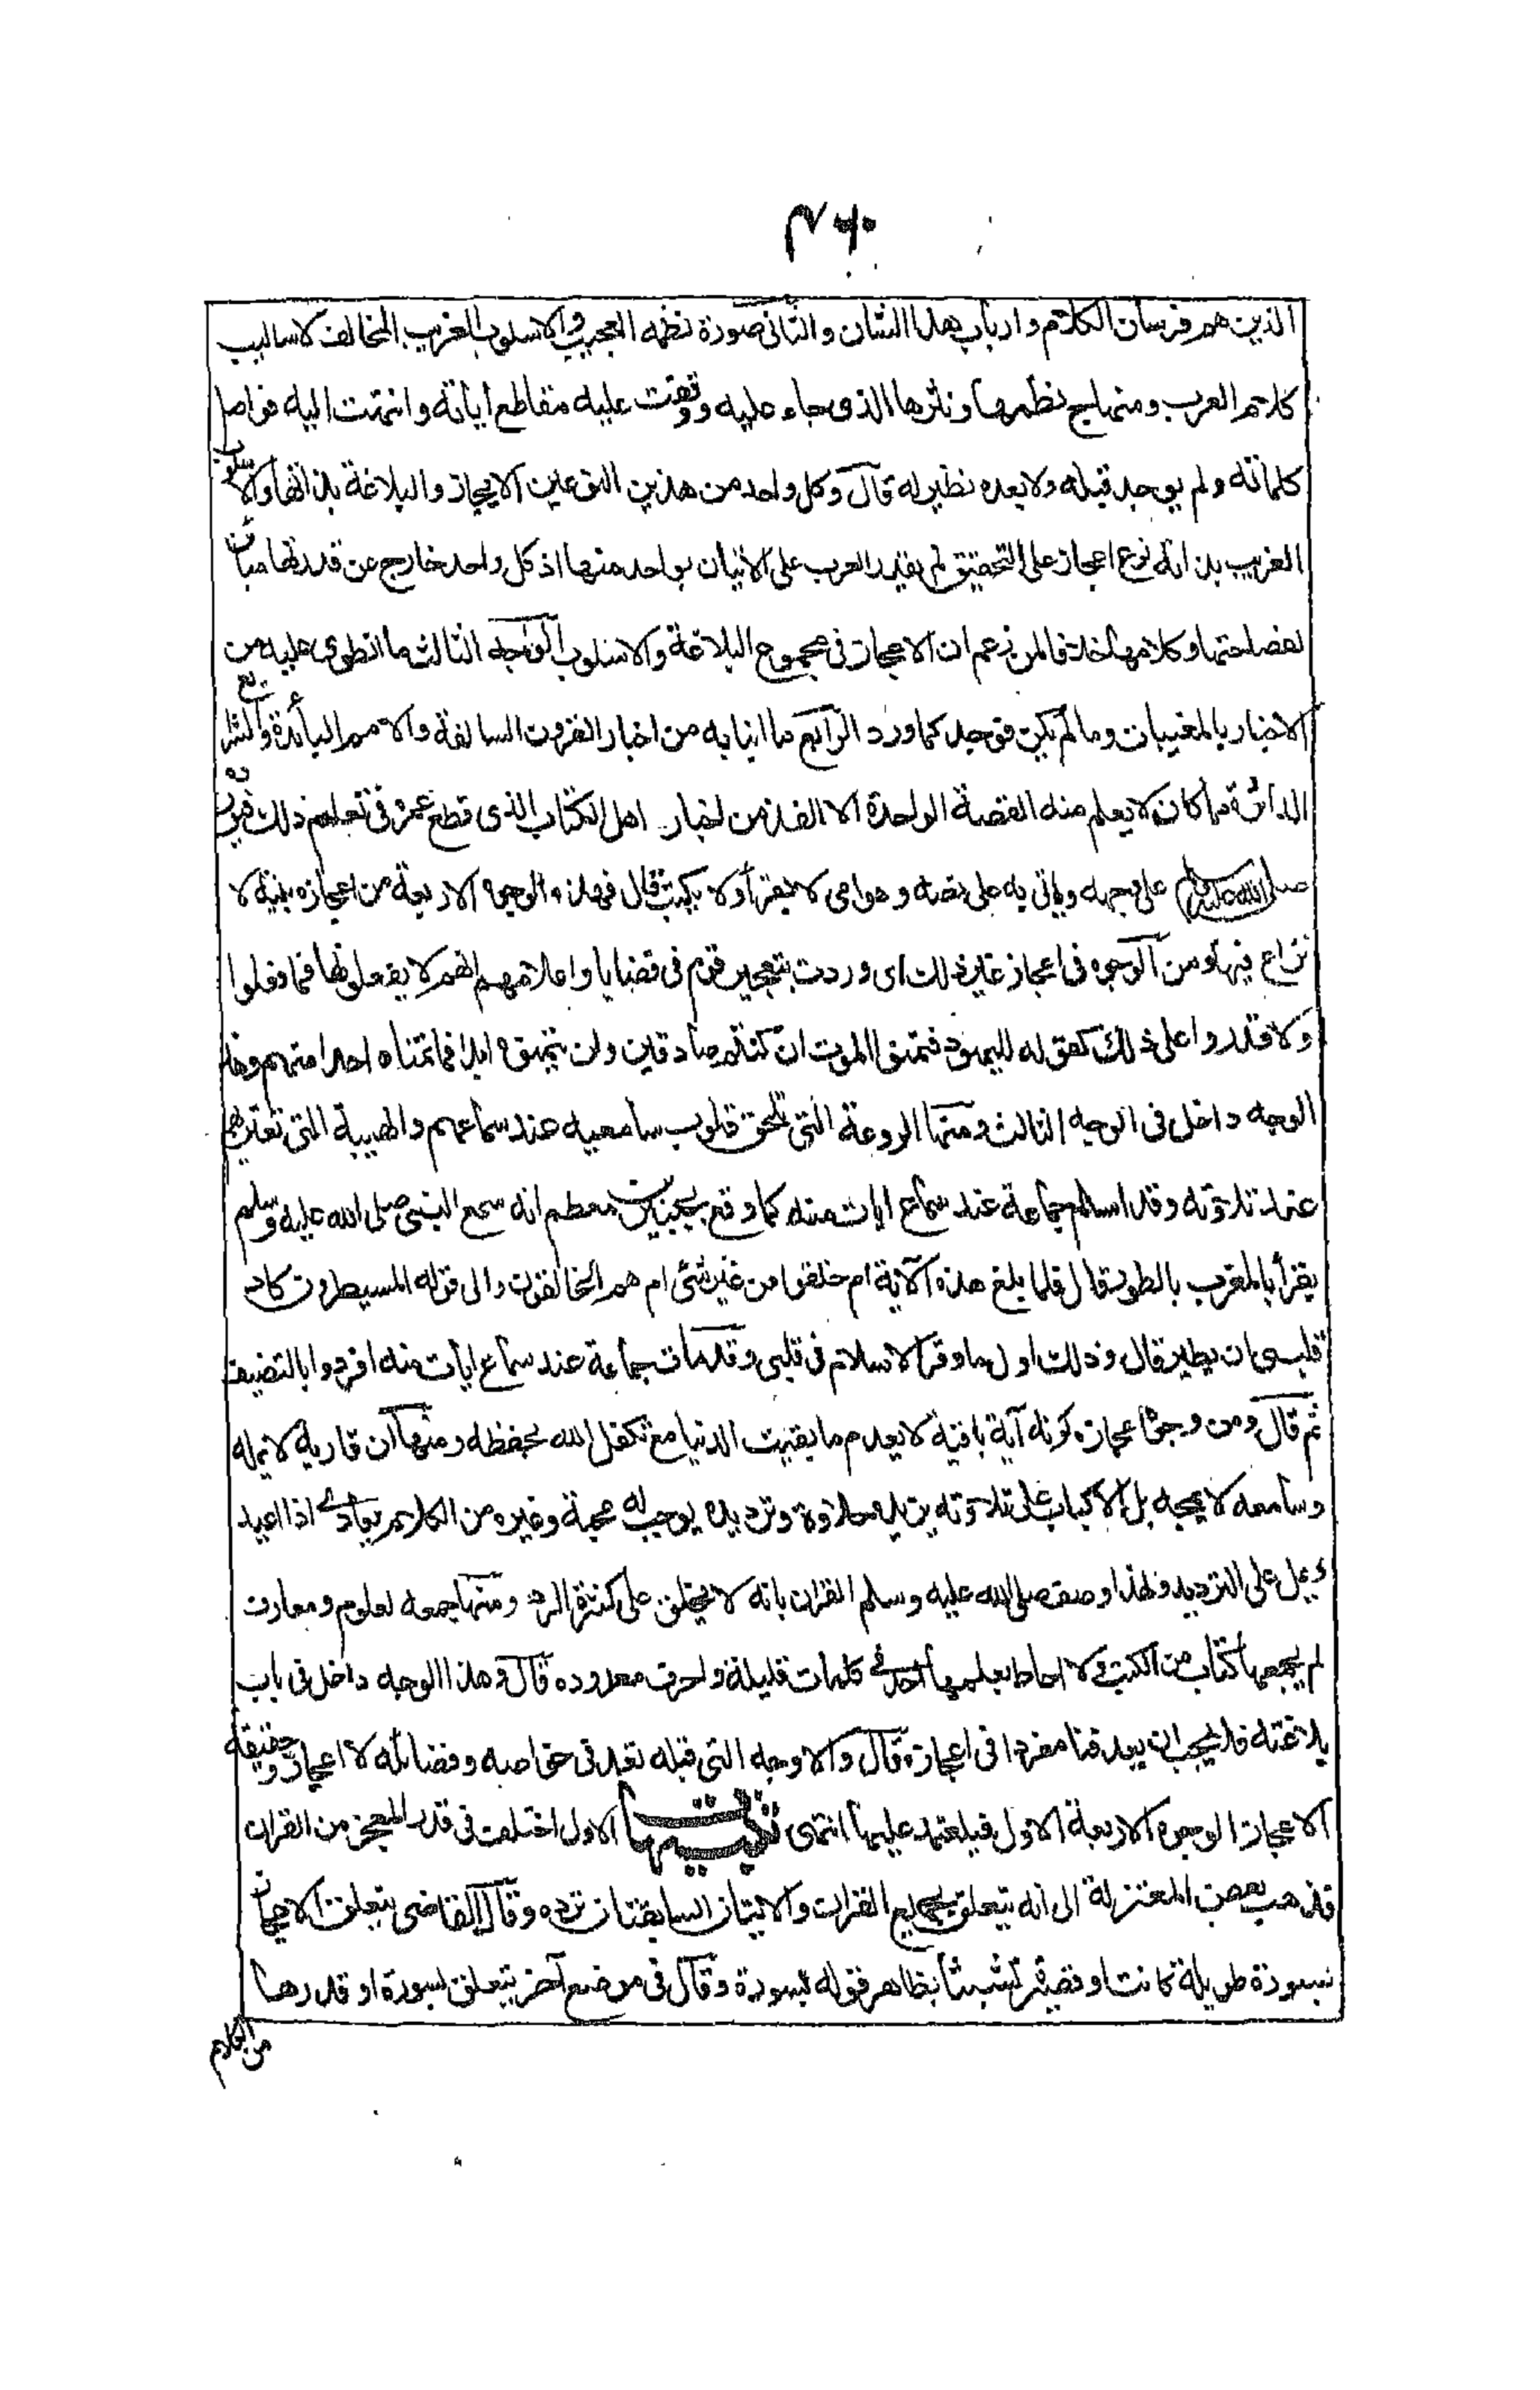 ٤٦٠
الذين هم فرسان الكلام وارباب هذا الشان والثانى صورة نظمه العجيب والاسلوب الغريب المخالف لاساليب
كلام العرب ومنهاج نظمها ونثرها الذى جاء عليه ووقفت عليه مقاطع اياته وانتهت اليه فواصل
كلماته ولم يوجد قبله ولا بعده نظير له قال وكل واحد من هذين النوعين الايجاز والبلاغة بذاتها والاسلوب
الغريب بذاته نوع اعجاز على التحقيق لم يقدر العرب على الاتيان بواحد منهما اذ كل واحد خارج عن قدرتها مباين
لفصاحتها وكلامها خلافا لمن زعم ان الاعجاز فى مجموع البلاغة والاسلوب الوجه الثالث ما انطوى عليه من
الاخبار بالمغيبات وما لم يكن فوجد كما ورد الرابع ما انبا به من اخبار القرون السالفة والامم البائدة والشرايع
الداثرة مما كان لا يعلم منه القصة الواحدة الا الفذ من اخبار اهل الكتاب الذى قطع عمره فى تعلم ذلك فيورده
صلى الله عليه وسلم على وجهه وياتى به على نصه وهو امى لا يقرأ ولا يكتب قال فهذه الوجوه الاربعة من اعجازه بينة لا
نزاع فيها ومن الوجوه فى اعجاز غير ذلك اى وردت بتعجيز قوم فى قضايا واعلامهم انهم لا يفعلونها فما فعلوا
ولا قدروا على ذلك كقوله لليهود فتمنوا الموت ان كنتم صادقين ولن يتمنوه ابدا فما تمناه احد منهم وهذا
الوجه داخل فى الوجه الثالث ومنها الروعة التى تلحق قلوب سامعيه عند سماعهم والهيبة التى تعتريهم
عند تلاوته وقد اسلم جماعة عند سماع ايات منه كما وقع لجبير بن مطعم انه سمع النبى صلى الله عليه وسلم
يقرأ بالمغرب بالطور قال فلما بلغ هذه الآية ام خلقوا من غير شئ ام هم الخالقون والى قوله المسيطرون كاد
قلبى ان يطير قال وذلك اول ما وقر الاسلام فى قلبى وقد مات جماعة عند سماع ايات منه افردوا بالتصنيف
ثم قال ومن وجوه اعجازه كونه آية باقية لا يعدم ما بقيت الدنيا مع تكفل الله بحفظه ومنها ان قاريه لا يمله
وسامعه لا يمجه بل الاكباب على تلاوته يزيده حلاوة وترديده يوجب له محبة وغيره من الكلام يعادى اذا اعيد
ويمل على الترديد ولهذا وصف صلى الله عليه وسلم القران بانه لا يخلق على كثرة الرد ومنها جمعه لعلوم ومعارف
لم يجمعها كتاب من الكتب ولا احاط بعلمها احد فى كلمات قليلة واحرف معدوده قال وهذا الوجه داخل فى باب
بلاغته فلا يجب ان يعد فنا مفردا فى اعجازه قال والاوجه التى قبله تعد فى خواصه وفضائله لا اعجازه وحقيقة
الاعجاز الوجوه الاربعة الاول فيلعتمد عليها انتهى تنبيهات الاول اختلف فى قدر المعجز من القران
فذهب بعض المعتزلة الى انه يتعلق بجميع القران والايتان السابقتان ترده وقال القاضى يتعلق الاعجاز
بسورة طويلة كانت او قصيرة تشبثا بظاهر قوله بسورة وقال فى موضع آخر يتعلق بسورة او قدرها
من الكلام